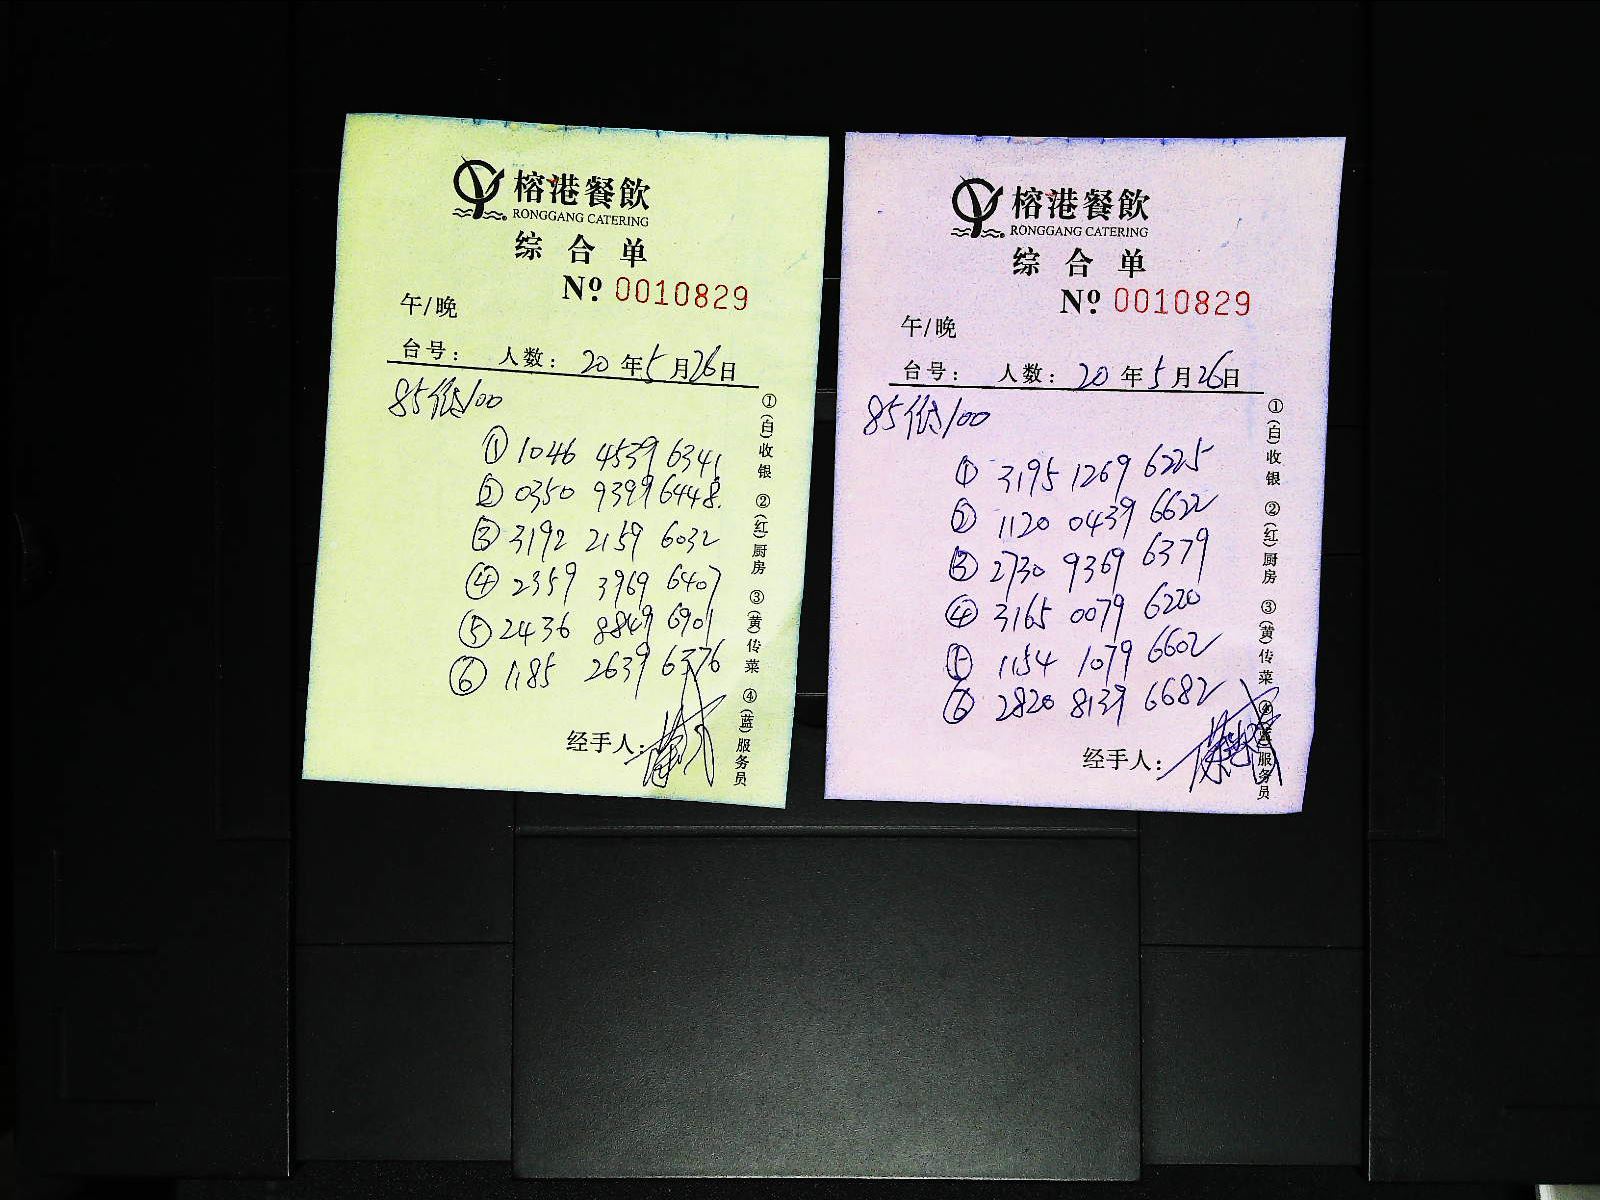 榕港餐飲
RONGGANG CATERING
综合单
Nº 0010829
午/晚
台号： 人数： 20 年 5 月 26 日
85低100
① 1046 4539 6341
② 0350 9399 6448
③ 3192 2159 6032
④ 2359 3969 6407
⑤ 2436 8849 6901
⑥ 1185 2639 6376
经手人：
①(白)收银 ②(红)厨房 ③(黄)传菜 ④(蓝)服务员
榕港餐飲
RONGGANG CATERING
综合单
Nº 0010829
午/晚
台号： 人数： 20 年 5 月 26 日
85低100
① 3195 1269 6225
② 1120 0439 6622
③ 2730 9369 6379
④ 3165 0079 6220
⑤ 1154 1079 6602
⑥ 2820 8139 6682
经手人：
①(白)收银 ②(红)厨房 ③(黄)传菜 ④(蓝)服务员